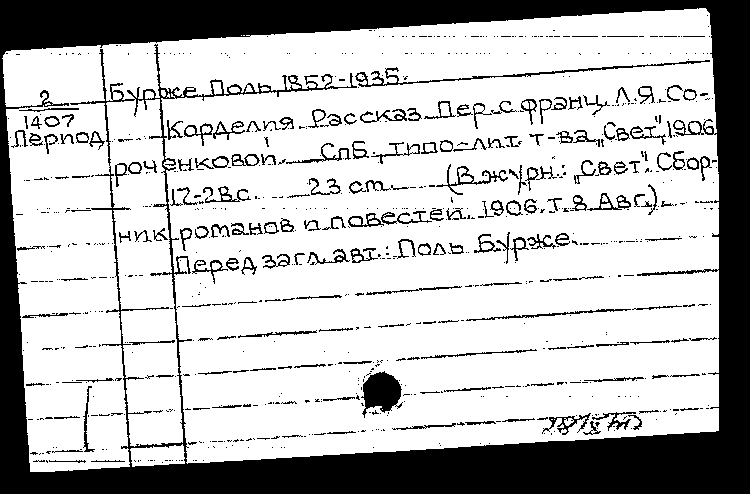 2
1407
Период
Бурже, Поль, 1852-1935.
Корделия. Рассказ. Пер. с франц. Л.Я. Со-
роченковой. СПб., типо-лит. т-ва „Свет", 1906
17-28 с. 23 cm. (В журн.: „Свет". Сбор-
ник романов и повестей. 1906. Т. 8. Авг.).
Перед загл. авт.: Поль Бурже.